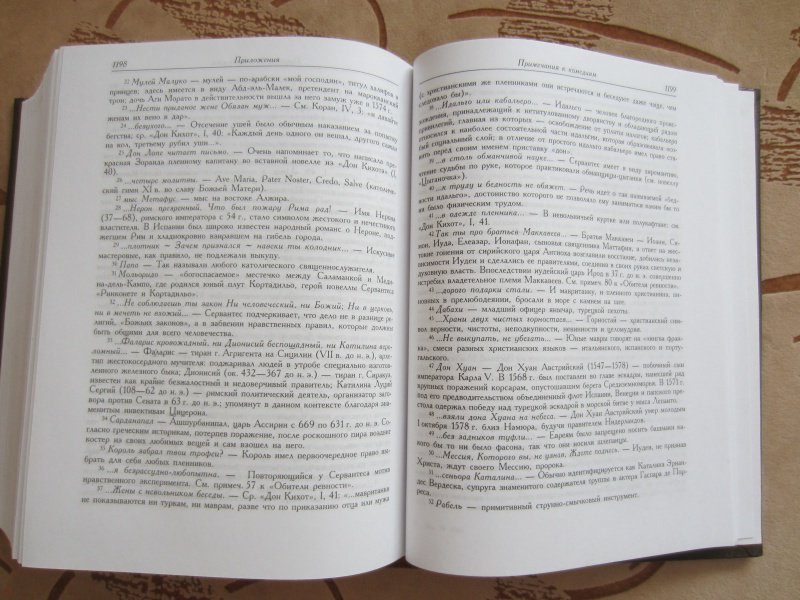 1198
Приложения
22 Мулей Малуко — мулей — по-арабски «мой господин», титул халифов и
принцев; здесь имеется в виду Абд-эль-Малек, претендент на марокканский
трон; дочь Аги Морато в действительности вышла за него замуж уже в 1574 г.
23 ...Нести приданое жене Обязан муж... — См. Коран, IV, 3: «и давайте
женам их вено в дар».
24 ...безухого... — Отсечение ушей было обычным наказанием за попытку
бегства; ср. «Дон Кихот», I, 40: «Каждый день одного он вешал, другого сажал
на кол, третьему рубил уши...».
25 Дон Лопе читает письмо. — Очень напоминает то, что написала пре-
красная Зораида пленному капитану во вставной новелле из «Дон Кихота» (I,
40).
26 ...четыре молитвы. — Ave Maria, Pater Noster, Credo, Salve (католичес-
кий гимн XI в. во славу Божьей Матери).
27 мыс Метафус. — мыс на востоке Алжира.
28 ...Нерон презренный, Что был пожару Рима рад! — Имя Нерона
(37—68), римского императора с 54 г., стало символом жестокого и нечестивого
властителя. В Испании был широко известен народный романс о Нероне, под-
жегшем Рим и хладнокровно взиравшем на гибель города.
29 ...плотник ~ Зачем признался ~ навски ты колодник... — Искусные
мастеровые, как правило, не подлежали выкупу.
30 Папо — Так называли любого католического священнослужителя.
31 Мольоридо — «богоспасаемое» местечко между Саламанкой и Меди-
на-дель-Кампо, где родился юный плут Кортадильо, герой новеллы Сервантеса
«Ринконете и Кортадильо».
32 ...Не соблюдаешь ты закон Ни человеческий, ни Божий; Ни в церковь,
ни в мечеть не вхожий... — Сервантес подчеркивает, что дело не в разнице рели-
гий, «Божьих законов», а в забвении нравственных правил, которые должны
быть общими для всего человечества.
33 ...Фаларис кровожадный, ни Дионисий беспощадный, ни Катилина веро-
ломный... — Фаларис — тиран г. Агригента на Сицилии (VII в. до н. э.), арха-
тип жестокосердного мучителя: поджаривал людей в утробе специально изготов-
ленного железного быка; Дионисий (ок. 432—367 до н. э.) — тиран г. Сиракуз,
известен как крайне безжалостный и недоверчивый правитель; Катилина Луций
Сергий (108—62 до н. э.) — римский политический деятель, организатор заго-
вора против Сената в 63 г. до н. э.; упомянут в данном контексте благодаря зна-
менитым инвективам Цицерона.
34 Сарданапал — Ашшурбанипал, царь Ассирии с 669 по 631 г. до н. э. Со-
гласно греческим историкам, потерпев поражение, после роскошного пира возвел
костер из своих любимых вещей и сам взошел на него.
35 Король забрал твои трофеи? — Король имел первоочередное право вы-
брать для себя любых пленников.
36 ...я безрассудно-любопытна. — Повторяющийся у Сервантеса мотив
нравственного эксперимента. См. примеч. 57 к «Обители ревности».
37 ...Жены с невольником беседы. — Ср. «Дон Кихот», I, 41: «...мавританки
не показываются ни туркам, ни маврам, разве что по приказанию отца или мужа
Примечания к комедиям
1199
(с христианскими же пленниками они встречаются и беседуют даже чаще, чем
следовало бы)».
38 ...Идальго или кабальеро... — Идальго — человек благородного проис-
хождения, принадлежащий к нетитулованному дворянству и обладающий рядом
привилегий, главная из которых — освобождение от уплаты налогов; кабальеро
относился к наиболее состоятельной части идальгии, которая образовывала особый
социальный слой; в отличие от простого идальго кабальеро имел право ста-
вить перед своим именем приставку «дон».
39 ...в столь обманчивой науке... — Сервантес имеет в виду хиромантию,
чтение судьбы по руке, которое практиковали обманщицы-цыганки (см. новеллу
«Цыганочка»).
40 ...к труду и бедность не обяжет. — Речь идет о так называемой «бед-
ности идальго», достоинство которого не позволяло ему заниматься каким бы то
ни было физическим трудом.
41 ...в одежде пленника... — В невольничьей куртке или полукафтане; см.
«Дон Кихот», I, 41.
42 Так ты про братьев Маккавеев... — Братья Маккавеи — Иоанн, Си-
мон, Иуда, Елеазар, Ионафан, сыновья священника Маттафии, в ответ на жес-
токие гонения от сирийского царя Антиоха возглавили восстание, добились незави-
симости Иудеи и сделались ее правителями, соединив в своих руках светскую и
духовную власть. Впоследствии иудейский царь Ирод в 37 г. до н. э. совершенно
истребил владетельное племя Маккавеев. См. примеч. 80 к «Обители ревности».
43 ...дорого подарки стали. — И мавританку, и пленного христианина, ули-
ченных в прелюбодеянии, бросали в море с камнем на шее.
44 Дабахи — младший офицер янычар, турецкой пехоты.
45 ...Храни двух чистых горностаев... — Горностай — христианский сим-
вол верности, чистоты, неподкупности, невинности и целомудрия.
46 ...Не выкупать, не убегать... — Юные мавры говорят на «лингва фран-
ка», смеси разных христианских языков — итальянского, испанского и порту-
гальского.
47 Дон Хуан — Дон Хуан Австрийский (1547—1578) — побочный сын
императора Карла V. В 1568 г. был поставлен во главе эскадры, нанесшей ряд
крупных поражений корсарам, опустошавшим берега Средиземноморья. В 1571 г.
под его предводительством объединенный флот Испании, Венеции и папского пре-
стола одержал победу над турецкой эскадрой в морской битве у мыса Лепанто.
48 ...взяли дона Хуана на небеса. — Дон Хуан Австрийский умер молодым
1 октября 1578 г. близ Намюра, будучи правителем Нидерландов.
49 ...без задников туфли... — Евреям было запрещено носить башмаки ка-
кого бы то ни было фасона, так что они носили шлепанцы.
50 ...Мессия, Которого вы, не узнав, Ждете поднесь. — Иудеи, не признав
Христа, ждут своего Мессию, пророка.
51 ...сеньора Каталина... — Обычно идентифицируется как Каталина Эрнан-
дес Вердеска, супруга знаменитого содержателя труппы и актера Гаспара де Пор-
реса.
52 Рабель — примитивный струнно-смычковый инструмент.